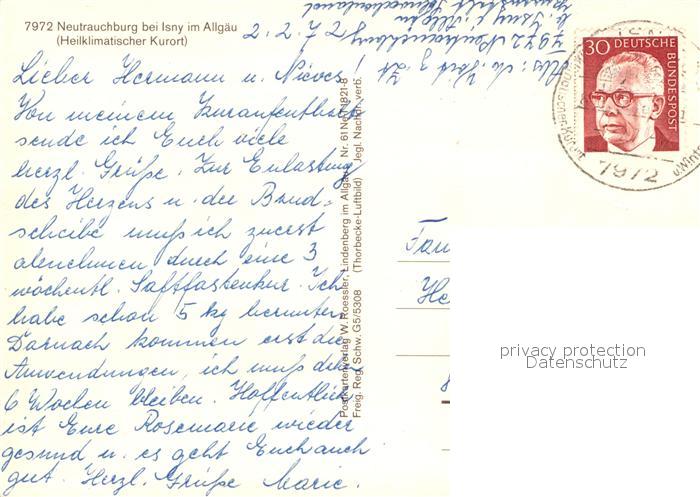 7972 Neutrauchburg bei Isny im Allgäu
(Heilklimatischer Kurort)
2.2.72
Lieber Hermann u. Nieves!
Von meinem Kuraufenthalte
sende ich Euch viele
herzl. Grüße. Zur Entlastung
des Herzens u. der Band-
scheibe muß ich zuerst
abnehmen durch eine 3
wöchentl. Saftfastenkur. Ich
habe schon 5 kg herunter.
Darnach kommen erst die
Anwendungen, ich muß daher
6 Wochen bleiben. Hoffentlich
ist Eure Rosemarie wieder
gesund u. es geht Euch auch
gut. Herzl. Grüße Marie.
Abs: M. z. Zt
7972 Neutrauchburg
b. Isny i. Allgäu
Postkartenverlag W. Roessler, Lindenberg im Allgäu Nr. 61 No 11821-8
Freig. Reg. Schw. G5/5308 (Thorbecke-Luftbild) Jegl. Nachdr. verb.
30 DEUTSCHE
BUNDESPOST
ISN
7972
Fam
He
privacy protection
Datenschutz